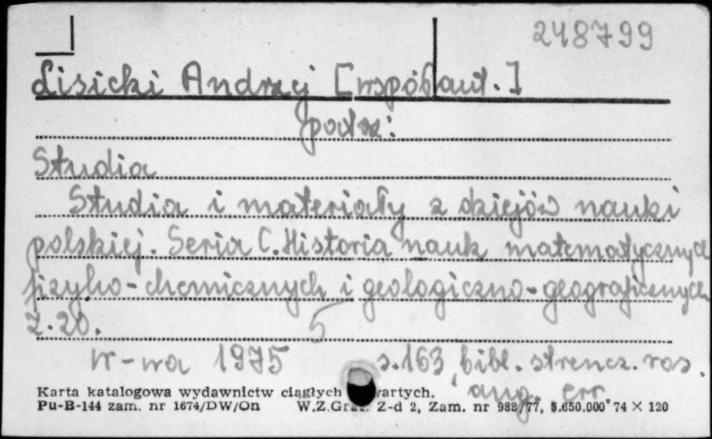 248799
Lisicki Andrzej [współaut.]
patrz:
Studia
Studia i materiały z dziejów nauki
polskiej. Seria C. Historia nauk matematycznych
fizyko-chemicznych i geologiczno-geograficznych
Z. 20. 5
W-wa 1975 s. 163 bibl. streszcz. ros.
ang. err
Karta katalogowa wydawnictw ciągłych wartych.
Pu-B-144 zam. nr 1674/DW/On W.Z.Graf. Z-d 2, Zam. nr 988/77, 5.650.000 74 × 120